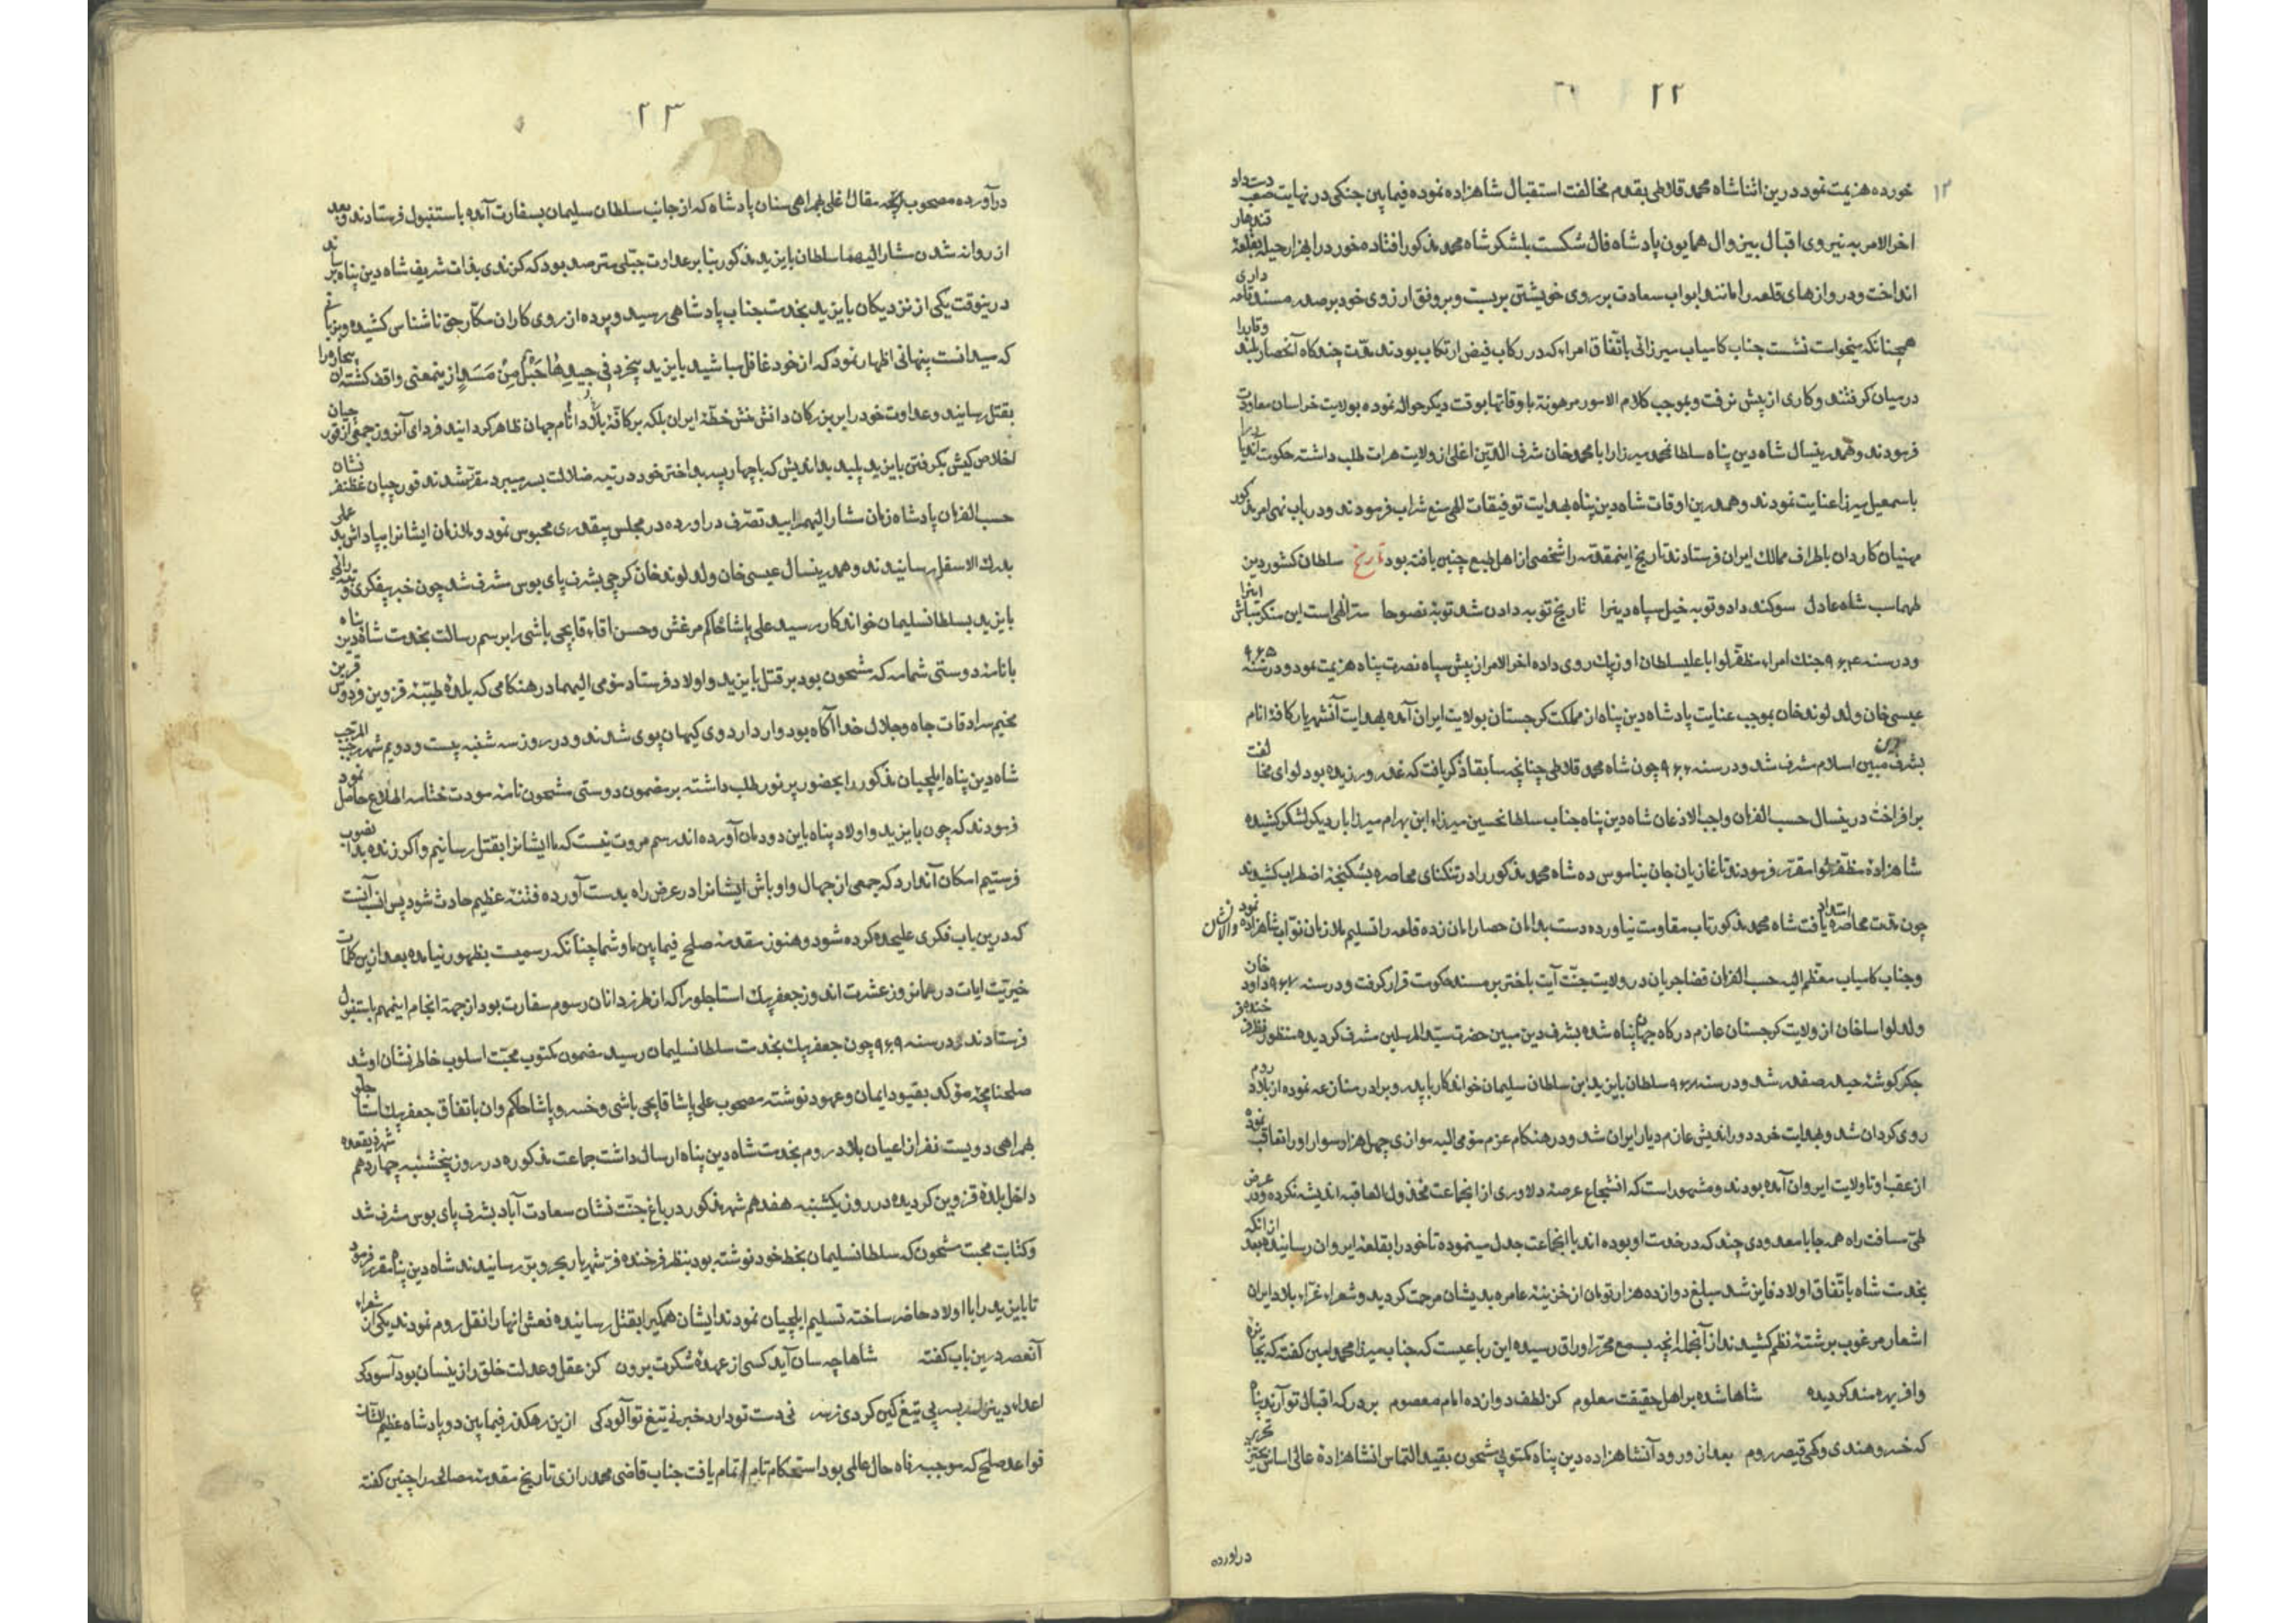 ۲۲
خورده هزیمت نمود درین اثنا شاه محمد قلاطی بقدم مخالفت استقبال شاهزاده نموده فیمابین جنکی در نهایت صعب دست داد
اخر الامر به نیروی اقبال بیزوال همایون پادشاه فال شکست بلشکر شاه محمد مذکور افتاده خود را بهزار حیله بقلعه قندهار
انداخت و دروازهای قلعه را مانند ابواب سعادت بر روی خویشتن بربست و بر وفق ارزوی خود بر صدر مسند قلعه داری
همچنانکه میخواست نشست جناب کامیاب میرزائی باتفاق امراء که در رکاب فیض ارتکاب بودند مدت چندکاه آنحصار بلند وقار را
در میان کرفتند و کاری از پیش نرفت و بموجب کلام الامور مرهونة باوقاتها بوقت دیکر حواله نموده بولایت خراسان معاودت
فرمودند و همدرینسال شاه دین پناه سلطانمحمد میرزا را با محمد خان شرف الدین اغلی از ولایت هرات طلب داشته حکومت اندیار را
باسمعیل میرزا عنایت نمودند و همدرین اوقات شاه دین پناه بهدایت توفیقات الهی منع شراب فرمودند و در باب نهی امر مذکور
مهنیان کاردان باطراف ممالک ایران فرستادند تاریخ اینمقدمه را شخصی از اهل طبع چنین یافته بود تاریخ سلطان کشور دین
طهماسب شاه عادل سوکند داد و توبه خیل سپاه دینرا تاریخ توبه دادن شد توبة نصوحا سر الهی است این منکر مباش اینرا
و در سنه ۹۶۴ جنک امراء مظفر لوا با علیسلطان اوزبک روی داده اخر الامر از پیش سپاه نصرت پناه هزیمت نمود و در سنه ۹۶۵
عیسی خان ولد لوند خان بموجب عنایت پادشاه دین پناه از مملکت کرجستان بولایت ایران آمده بهدایت آنشهریار کافه انام
بشرف دین مبین اسلام مشرف شد و در سنه ۹۶۶ چون شاه محمد قلاطی چنانچه سابقا ذکر یافت که غدر ورزیده بود لوای مخالفت
برافراخت درینسال حسب الفرمان واجب الاذعان شاه دین پناه جناب سلطانحسین میرزاء ابن بهرام میرزا بار دیکر لشکر کشیده
شاهزاده مظفر لوا مقرر فرمودند تا غازیان جان بناموس ده شاه محمد مذکور را در تنکنای محاصره بشکنجه اضطراب کشیدند
چون مدت محاصره امتداد یافت شاه محمد مذکور تاب مقاومت نیاورده دست بدامان حصار امان زده قلعه را تسلیم ملازمان نواب شاهزاده نمود
و جناب کامیاب معظم الیه حسب الفرمان قضا جریان در ولایت جنت آیت باختر بر مسند حکومت قرار کرفت و در سنه ۹۶۷ داود خان
ولد لواساخان از ولایت کرجستان عازم درکاه جهان پناه شده بشرف دین مبین حضرت سید المرسلین مشرف کردیده منظور نظر
جکر کوشه حیدر صفدر شد و در سنه ۹۶۷ سلطان بایزید ابن سلطان سلیمان خواندکار با پدر و برادر منازعه نموده از بلاد روم
روی کردان شد و بهدایت خرد دوراندیش عازم دیار ایران شد و در هنکام عزم مومی الیه موازی چهل هزار سوار او را تعاقب نموده
از عقب او تا ولایت ایروان آمده بودند و مشهور است که انشجاع عرصه دلاوری از انجماعت مخذول العاقبه اندیشه نکرده و در عرض
طی مسافت راه همه جا با معدودی چند که در خدمت او بوده اند با انجماعت جدل مینموده تا خود را بقلعه ایروان رسانیده بعد از انکه
بخدمت شاه باتفاق اولاد فایز شد مبلغ دوازده هزار تومان از خزینه عامره بدیشان مرحمت کردید و شعراء غراء بلاد ایران
اشعار مرغوب برشته نظم کشیدند از آنجمله انچه بسمع محرر اوراق رسیده این رباعیست که جناب میرزا محمد امین کفته که بجایزه
وافر بهره مند کردیده شاها شده بر اهل حقیقت معلوم کز لطف دوازده امام معصوم بر درکه اقبال تو آرند پناه
که خسرو هندی و کهی قیصر روم بعد از ورود آنشاهزاده دین پناه مکتوبی مشحون بقید التماس انشاهزاده عالی اساس بحیز تحریر
دراورده
۲۳
درآورده مصحوب مقال اغلی بهمراهی سنان پادشاه که از جانب سلطان سلیمان بسفارت آمده باستنبول فرستادند و بعد
از روانه شدن مشار الیهما سلطان بایزید مذکور بنابر عداوت جبلی مترصد بود که کزندی بذات شریف شاه دین پناه رساند
درینوقت یکی از نزدیکان بایزید بخدمت جناب پادشاهی رسید و پرده از روی کار ان مکار حق ناشناس کشیده و بزبانی
که میدانست پنهانی اظهار نمود که از خود غافل مباشید بایزید بیخرد فی جیدها حبل من مسد از ینمعنی واقف کشته ان بیچاره را
بقتل رسانید و عداوت خود را بر بزرکان دانش منش خطه ایران بلکه بر کافه بلاد انام جهان ظاهر کردانید فردای آنروز جمعی از قورچیان
اخلاص کیش بکرفتن بایزید پلید بداندیش که با چهار پسر بداختر خود در تیه ضلالت بسر میبرد مقرر شدند قورچیان غضنفر نشان
حسب الفرمان پادشاه زمان مشار الیهم را بید تصرف دراورده در مجلس بیقدری محبوس نمود و ملازمان ایشانرا بپاداش بد عملی
بدرک الاسفل رسانیدند و همدرینسال عیسی خان ولد لوند خان کرجی بشرف پای بوس مشرف شد چون خبر بیفکری و بدرائی
بایزید بسلطانسلیمان خواندکار رسید علی پاشا حاکم مرغش و حسن اقاء قاپچی باشی را برسم رسالت بخدمت شاه دین پناه
با نامه دوستی شمامه که مشحون بود بر قتل بایزید و اولاد فرستاد مومی الیهما در هنکامی که بلده طیبه قزوین فردوس قرین
مخیم سرادقات جاه و جلال خدا آکاه بود وارد اردوی کیهان پوی شدند و در روز سه شنبه بیست و دویم شهر رجب المرجب
شاه دین پناه ایلچیان مذکور را بحضور پر نور طلب داشته بر مضمون دوستی مشحون نامه مودت ختامه اطلاع حاصل نمود
فرمودند که چون بایزید و اولاد پناه باین دودمان آورده اند رسم مروت نیست که ما ایشانرا بقتل رسانیم و اکر زنده بدانصوب
فرستیم امکان آندارد که جمعی از جهال و اوباش ایشانرا در عرض راه بدست آورده فتنه عظیم حادث شود پس انسب آنست
که درین باب فکری علیحده کرده شود و هنوز مقدمه صلح فیمابین ما و شما چنانکه رسمیست بظهور نیامده بعد از ین کلمات
خیریت ایات در همانروز عشرت اندوز جعفر بیک استاجلو را که از طرز دانان رسوم سفارت بود از جهة انجام اینمهم باستنبول
فرستادند و در سنه ۹۶۹ چون جعفر بیک بخدمت سلطانسلیمان رسید مضمون مکتوب محبت اسلوب خاطر نشان او شد
صلحنامچه موکد بقیود ایمان و عهود نوشته مصحوب علی پاشا قاپچی باشی و خسرو پاشا حاکم وان باتفاق جعفر بیک استاجلو
بهمراهی دویست نفر از اعیان بلاد روم بخدمت شاه دین پناه ارسال داشت جماعت مذکوره در روز پنجشنبه چهاردهم شهر ذیقعده
داخل بلده قزوین کردیده در روز یکشنبه هفدهم شهر مذکور در باغ جنت نشان سعادت آباد بشرف پای بوس مشرف شد
و کتابت محبت مشحون که سلطانسلیمان بخط خود نوشته بود بنظر فرخنده فر شهریار بحر و بر رسانیدند شاه دین پناه مقرر فرمود
تا بایزید را با اولاد حاضر ساخته تسلیم ایلچیان نمودند ایشان همکیرا بقتل رسانیده نعش انها را نقل روم نمودند یکی از شعراء
آنعصر درین باب کفته شاها چه سان آید کسی از عهده شکرت برون کز عقل و عدلت خلق را زینسان بود آسودکی
اعداء دین را سر بسر بی تیغ کین کردی نی دست تو دارد خبر نی تیغ تو آلودکی ازین رهکذر فیمابین دو پادشاه عظیم الشان
قواعد صلح که موجب رفاه حال عالمی بود استحکام تمام یافت جناب قاضی محمد رازی تاریخ مقدمه مصالحه را چنین کفته